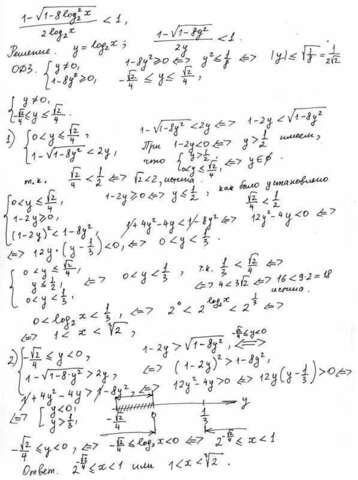 \frac{1-\sqrt{1-8\log_2^2 x}}{2\log_2 x} < 1,
Решение. y = log₂x ; \frac{1-\sqrt{1-8y^2}}{2y} < 1.
ОДЗ. { y ≠ 0, 1-8y² ≥ 0, 1-8y² ≥ 0 ⇔ y² ≤ \frac{1}{8} ⇔ |y| ≤ \sqrt{\frac{1}{8}} = \frac{1}{2\sqrt{2}}
-\frac{\sqrt{2}}{4} ≤ y ≤ \frac{\sqrt{2}}{4};
{ y ≠ 0, -\frac{\sqrt{2}}{4} ≤ y ≤ \frac{\sqrt{2}}{4}.
1) { 0 < y ≤ \frac{\sqrt{2}}{4}, 1-\sqrt{1-8y²} < 2y, 1-\sqrt{1-8y²} < 2y ⇔ 1-2y < \sqrt{1-8y²}
При 1-2y < 0 ⇔ y > \frac{1}{2} имеем,
что { y > \frac{1}{2}, 0 < y ≤ \frac{\sqrt{2}}{4}, ⇔ y ∈ ∅.
т.к. \frac{\sqrt{2}}{4} < \frac{1}{2} ⇔ √2 < 2, истина.
{ 0 < y ≤ \frac{\sqrt{2}}{4}, 1-2y ≥ 0, (1-2y)² < 1-8y², 1-2y ≥ 0 ⇔ y ≤ \frac{1}{2}, как было установлено \frac{\sqrt{2}}{4} < \frac{1}{2}
1+4y²-4y < 1-8y² ⇔ 12y²-4y < 0 ⇔
⇔ 12y·(y-\frac{1}{3}) < 0, ⇔ 0 < y < \frac{1}{3}.
{ 0 < y ≤ \frac{\sqrt{2}}{4}, y ≤ \frac{1}{2}, 0 < y < \frac{1}{3}, ⇔ 0 < y < \frac{1}{3}, т.к. \frac{1}{3} < \frac{\sqrt{2}}{4} ⇔
⇔ 4 < 3√2 ⇔ 16 < 9·2 = 18 истина.
0 < log₂x < \frac{1}{3}, ⇔ 2⁰ < 2^{log₂x} < 2^{\frac{1}{3}} ⇔
⇔ 1 < x < ∛2,
2) { -\frac{\sqrt{2}}{4} ≤ y < 0, 1-\sqrt{1-8·y²} > 2y, 1-2y > \sqrt{1-8y²}, -\frac{\sqrt{2}}{4} ≤ y < 0 ⇔
⇔ (1-2y)² > 1-8y²,
1+4y²-4y > 1-8y², ⇔ 12y²-4y > 0 ⇔ 12y(y-\frac{1}{3}) > 0 ⇔
⇔ [ y < 0, y > \frac{1}{3}, -\frac{\sqrt{2}}{4} 0 \frac{1}{3} y
-\frac{\sqrt{2}}{4} ≤ y < 0, ⇔ -\frac{\sqrt{2}}{4} ≤ log₂x < 0 ⇔ 2^{-\frac{\sqrt{2}}{4}} ≤ x < 1
Ответ. 2^{-\frac{\sqrt{2}}{4}} ≤ x < 1 или 1 < x < ∛2.